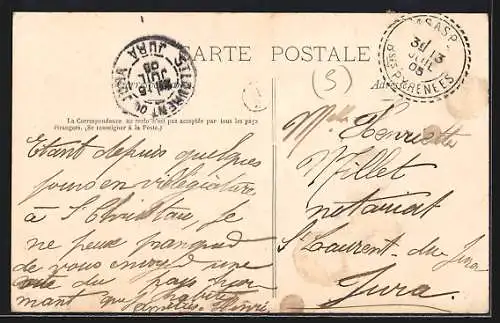 CARTE POSTALE
ASASP
Bses PYRENEES
31 13
JUIL
05
ST LAURENT DU JURA
JURA
JUIL
05
(5)
La Correspondance au recto n'est pas acceptée par tous les pays
étrangers. (Se renseigner à la Poste.)
Etant depuis quelques
jours en villégiature
à St Christau, je
ne peux
de vous envoyer une
vue du pays
mant que j'habite
Henri
Melle Henriette
Millet
notariat
St Laurent-du Jura
Jura.